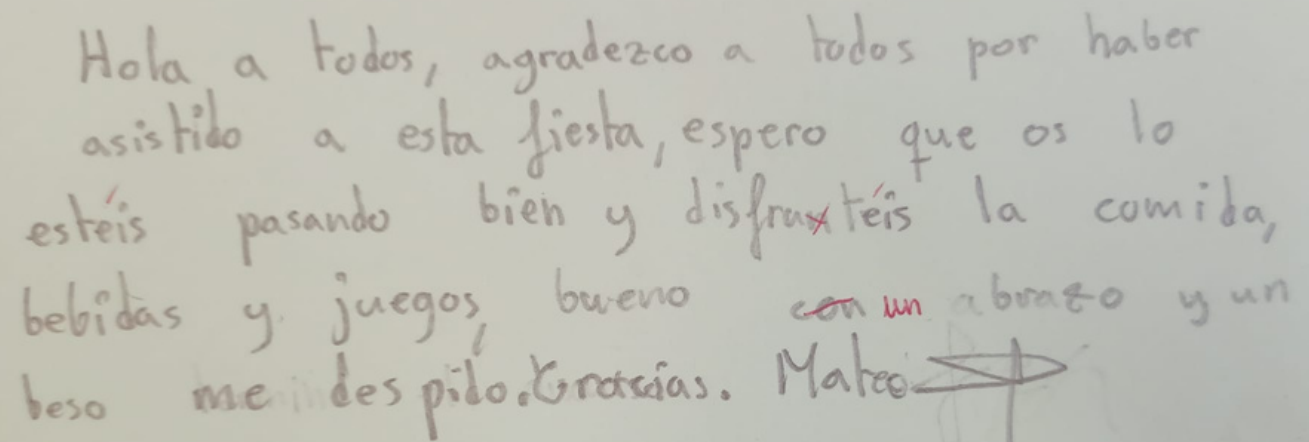 Hola a todos, agradezco a todos por haber
asistido a esta fiesta, espero que os lo
estéis pasando bien y disfrutéis la comida,
bebidas y juegos, bueno con un abrazo y un
beso me despido. Gracias. Mateo